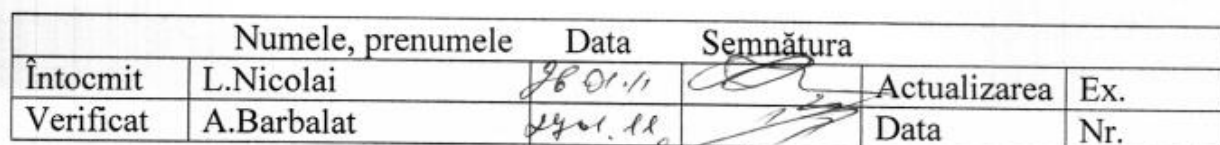 Numele, prenumele Data Semnătura
Întocmit L.Nicolai 26 01.11 Actualizarea Ex.
Verificat A.Barbalat Data Nr.